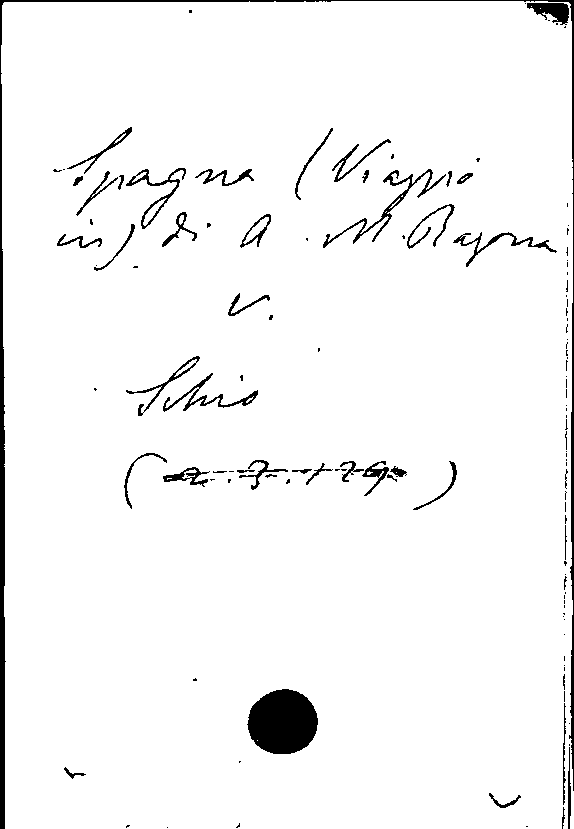 Spagna (Viaggio
in) di A. M. Ragona
v.
Schio
(2.3.129)